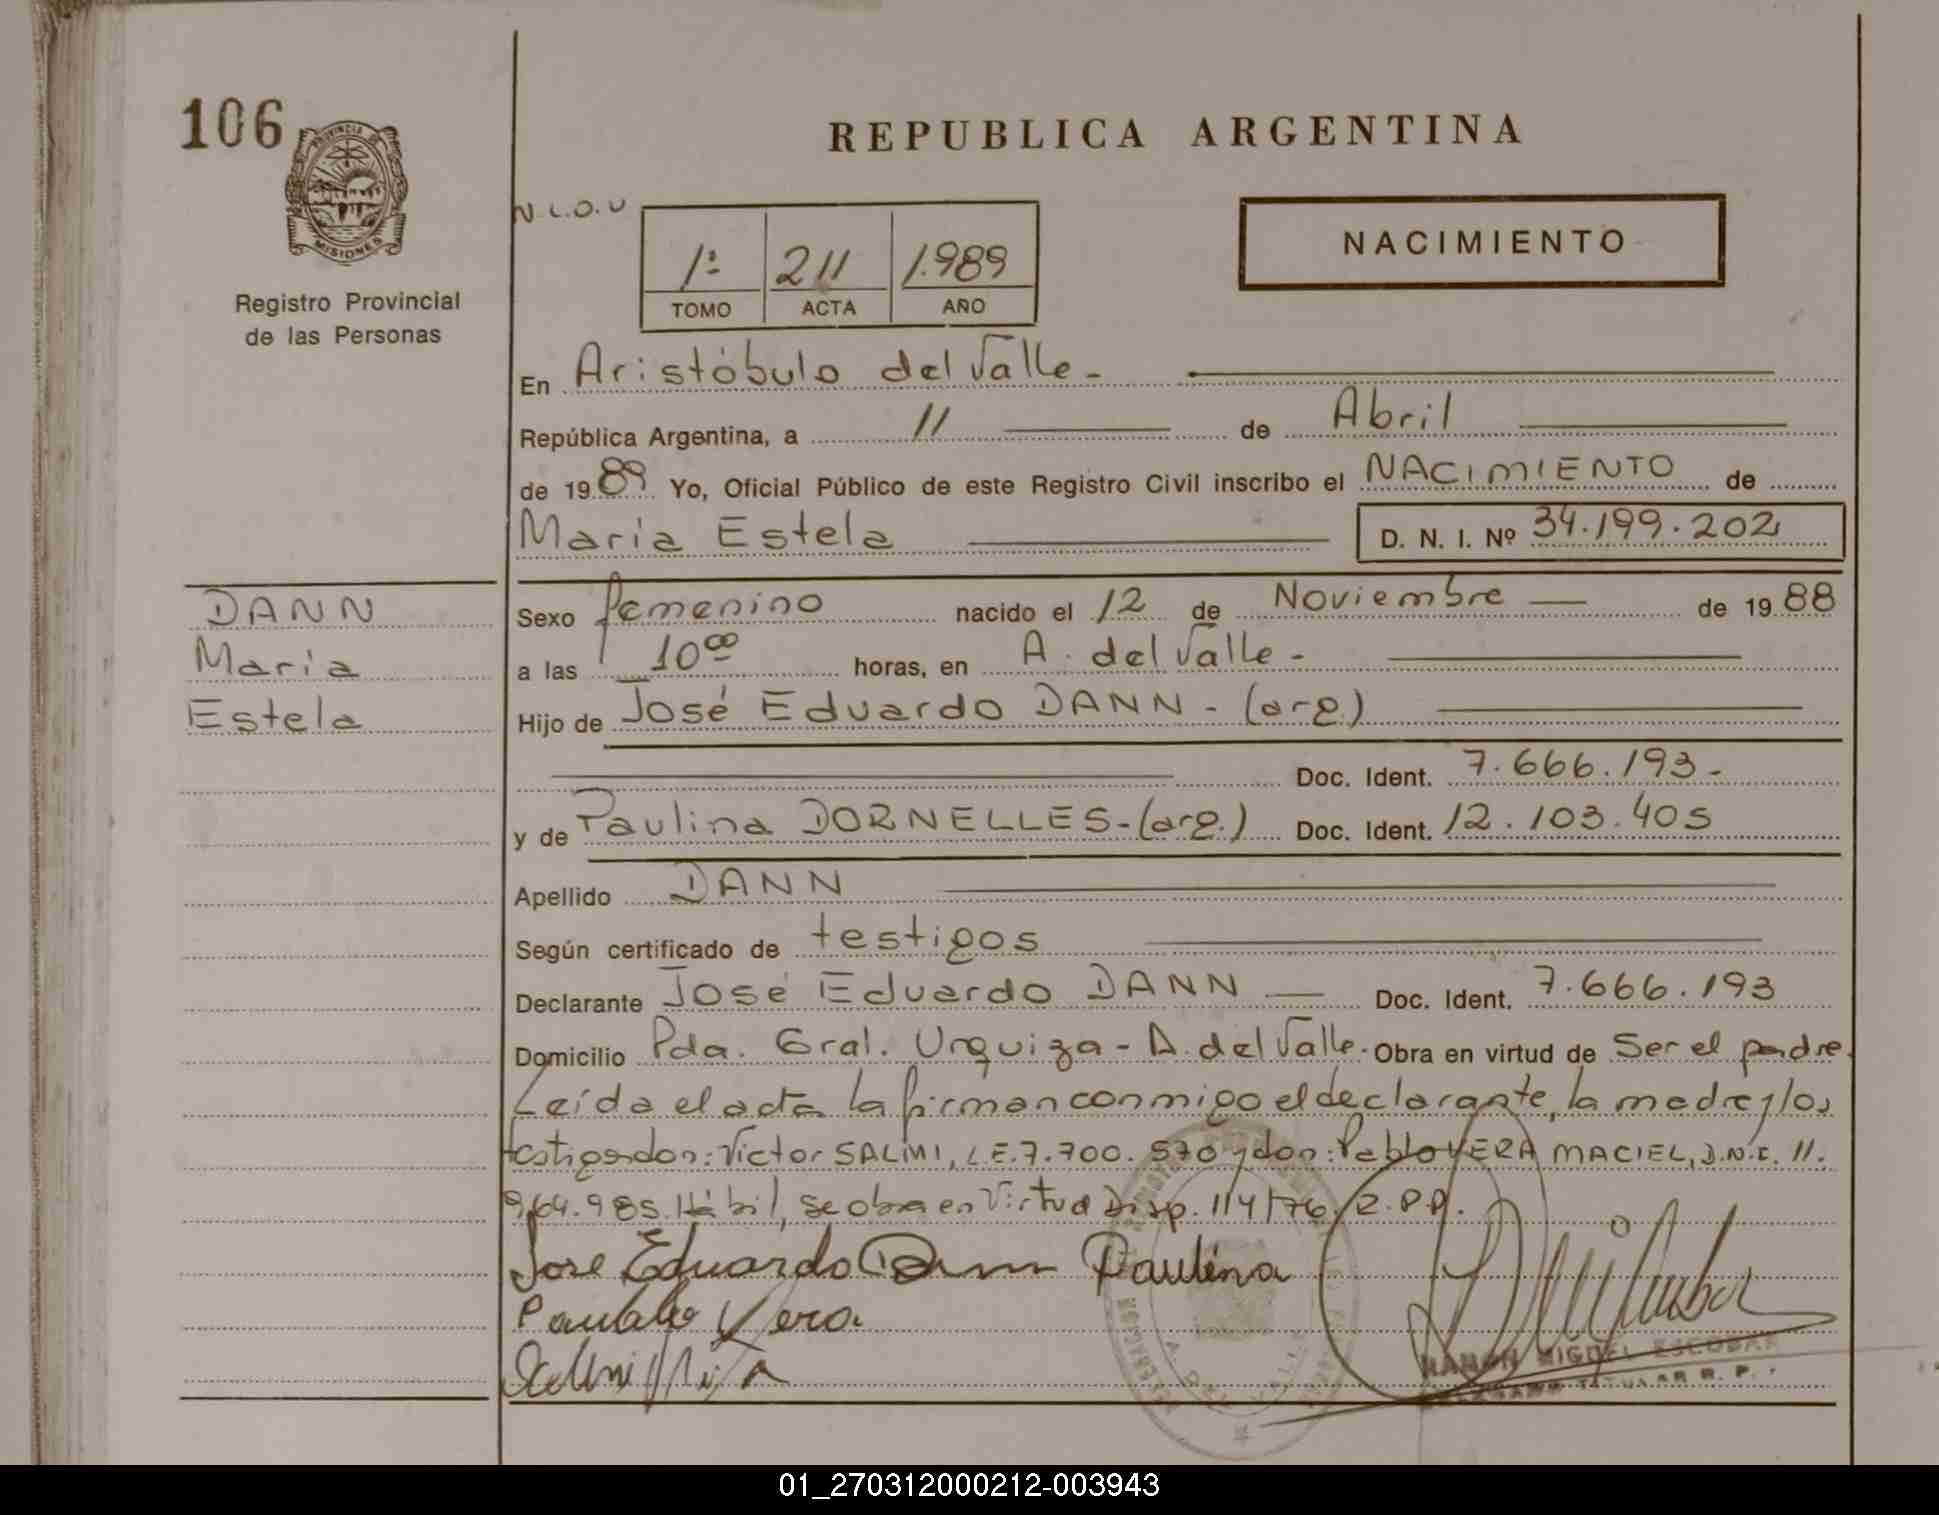 106
PROVINCIA DE
MISIONES
Registro Provincial
de las Personas
REPUBLICA ARGENTINA
N.L.O.U
1º 211 1.989
TOMO ACTA AÑO
NACIMIENTO
En Aristóbulo del Valle-
República Argentina, a 11 de Abril
de 1989 Yo, Oficial Público de este Registro Civil inscribo el NACIMIENTO de
María Estela D. N. I. Nº 34.199.202
DANN
María
Estela
Sexo femenino nacido el 12 de Noviembre de 1988
a las 10⁰⁰ horas, en A. del Valle-
Hijo de José Eduardo DANN - (arg.)
Doc. Ident. 7.666.193-
y de Paulina DORNELLES-(arg.) Doc. Ident. 12.103.405
Apellido DANN
Según certificado de testigos
Declarante José Eduardo DANN Doc. Ident. 7.666.193
Domicilio Pda. Gral. Urquiza - A. del Valle. Obra en virtud de Ser el padre.
Leída el acta la firman conmigo el declarante, la madre y los
testigos don: Víctor SALMI, L.E.7.700.570 y don: Pablo VERA MACIEL, D.N.I. 11.
964.985. Hábil, se obra en Virtud Disp. 114/76. R.P.P.
Jose Eduardo Dann Paulina
Paublo Vera
RAMON MIGUEL ESCOBAR
DELEGADO TITULAR R. P.
01_270312000212-003943